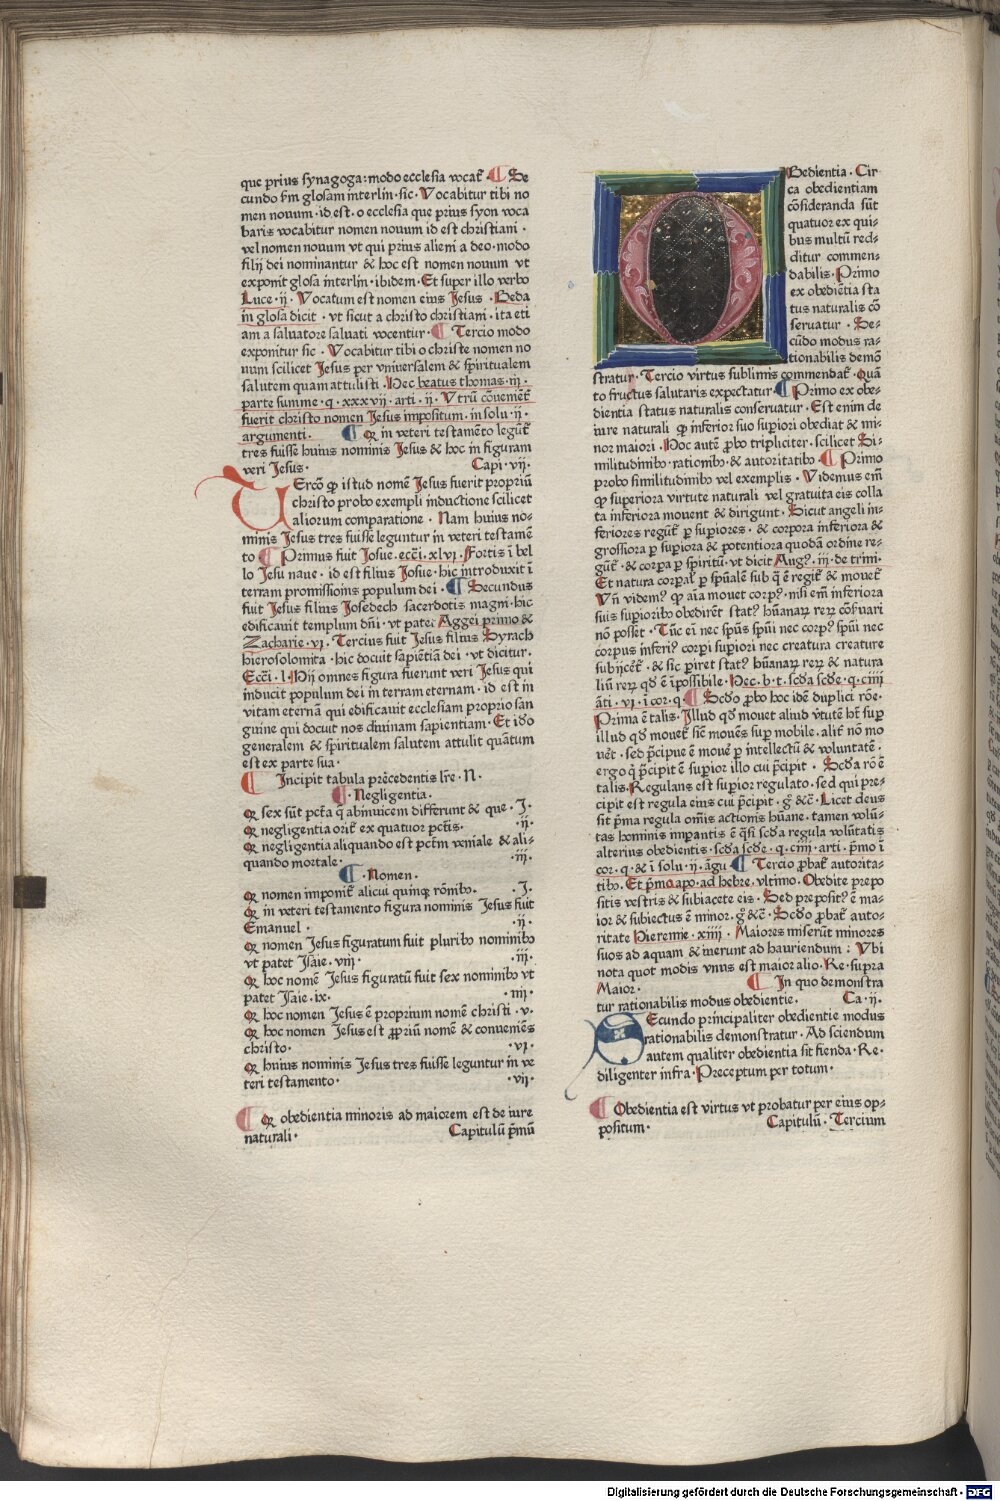 que prius synagoga: modo ecclesia vocat̃ · ¶ Se
cundo ẜm glosam interliñ · sic · Vocabitur tibi no
men nouum · id est · o ecclesia que prius syon voca
baris vocabitur nomen nouum id est christiani ·
vel nomen nouum vt qui prius alieni a deo · modo
filij dei nominantur & hoc est nomen nouum vt
exponit glosa interliñ · ibidem · Et super illo verbo
Luce · ij · Vocatum est nomen eius Jesus · Beda
in glosa dicit · vt sicut a christo christiani · ita eti
am a saluatore saluati vocentur · ¶ Tercio modo
exponitur sic · Vocabitur tibi o christe nomen no
uum scilicet Jesus per vniuersalem & spiritualem
salutem quam attulisti · Hec beatus thomas · iij ·
parte summe · q · xxxvij · arti · ij · Vtrũ cõuemẽt̃
fuerit christo nomen Jesus impositum · in solu · ij ·
argumenti · ¶ Q in veteri testamẽto legũt̃
tres fuisse huius nominis Jesus & hoc in figuram
veri Jesus · Capi · vij ·
Tercõ ꝙ istud nomẽ Jesus fuerit propriũ
christo probo exempli inductione scilicet
aliorum comparatione · Nam huius no-
minis Jesus tres fuisse leguntur in veteri testamẽ
to · ¶ Primus fuit Josue · ecc̃i · xlvj · Fortis ĩ bel
lo Jesu naue · id est filius Josue · hic introduxit ĩ
terram promissionis populum dei · ¶ Secundus
fuit Jesus filius Josedech sacerdotis magni · hic
edificauit templum dñi · vt patet Aggei primo &
Zacharie · vj · Tercius fuit Jesus filius Syrach
hierosolomita · hic docuit sapiẽtiã dei · vt dicitur ·
Ecc̃i · l · Hij omnes figura fuerunt veri Jesus qui
inducit populum dei in terram eternam · id est in
vitam eternã qui edificauit ecclesiam proprio san
guine qui docuit nos diuinam sapientiam · Et iđo
generalem & spiritualem salutem attulit quãtum
est ex parte sua ·
¶ Incipit tabula prẽcedentis lr̃e · N ·
¶ · Negligentia ·
Q sex sũt pctã q̃ abinuicem differunt & que · J ·
Q negligentia orit̃ ex quatuor pctĩs · · ij ·
Q negligentia aliquando est pctm̃ veniale & ali-
quando mortale · · iij ·
¶ · Nomen ·
Q nomen imponit̃ alicui quinqꝫ rõnibꝰ · · J ·
Q in veteri testamento figura nominis Jesus fuit
Emanuel · · ij ·
Q nomen Jesus figuratum fuit pluribꝰ nominibꝰ
vt patet Jsaie · viij · · iij ·
Q hoc nomẽ Jesus figuratũ fuit sex nominibꝰ vt
patet Jsaie · ix · · iiij ·
Q hoc nomen Jesus ẽ proprium nomẽ christi · v ·
Q hoc nomen Jesus est ꝓpriũ nomẽ & conueniẽs
christo · · vj ·
Q huius nominis Jesus tres fuisse leguntur in ve
teri testamento · · vij ·
¶ Q obedientia minoris ad maiorem est de iure
naturali · Capitulũ p̃mũ
OBedientia · Cir
ca obedientiam
cõsideranda sũt
quatuor ex qui-
bus multũ red-
ditur commen-
dabilis · Primo
ex obediẽtia sta
tus naturalis cõ
seruatur · Se-
cũdo modus ra-
tionabilis demõ
stratur · Tercio virtus sublimis commendat̃ · Quã
to fructus salutaris expectatur · ¶ Primo ex obe-
dientia status naturalis conseruatur · Est enim de
iure naturali ꝙ inferior suo supiori obediat & mi-
nor maiori · Hoc autẽ ꝓbo tripliciter · scilicet Si-
militudinibꝰ · rationibꝰ · & autoritatibꝰ · ¶ Primo
probo similitudinibꝰ vel exemplis · Videmus em̃
ꝙ superiora virtute naturali vel gratuita eis colla
ta inferiora mouent & dirigunt · Sicut angeli in-
feriores regũt̃ ꝑ suꝑiores · & corpora inferiora &
grossiora ꝑ suꝑiora & potentiora quodã ordine re-
gũt̃ · & corꝑa ꝑ spiritũ · vt dicit Augꝰ · iij · de trini ·
Et natura corꝑal̃ ꝑ spũalẽ sub q̃ ẽ regit̃ & mouet̃
Vñ videmꝰ ꝙ aĩa mouet corpꝰ · nisi em̃ inferiora
suis suꝑioribꝰ obedirẽt statꝰ hũanaꝝ reꝝ cõseruari
nõ posset · Tũc ei nec spũs spũi nec corpꝰ spũi nec
corpus inferiꝰ corpi suꝑiori nec creatura creature
subijcẽt̃ · & sic ꝑiret statꝰ hũanaꝝ reꝝ & natura
liũ reꝝ qđ ẽ ĩpossibile · Hec · b · t · scđa scđe · q · ciiij
ãti · vj · ĩ cor · q · ¶ Scđo ꝓbo hoc idẽ duplici rõe ·
Prima ẽ talis · Jllud qđ mouet aliud v̾tutẽ hꝫ suꝑ
illud qđ mouet̃ sic̃ mouẽs suꝑ mobile · alit̃ nõ mo
uẽt · sed p̃cipue ẽ mouẽ ꝑ intellectũ & volũtatẽ ·
ergo q̃ p̃cipit ẽ suꝑior illo cui p̃cipit · Scđa rõ ẽ
talis · Regulans est suꝑior regulato · sed qui pre-
cipit est regula eius cui p̃cipit · g̊ &c̃ · Licet deus
sit p̃ma regula om̃is actionis hũane · tamen volũ-
tas hominis imꝑantis ẽ q̃si scđa regula volũtatis
alterius obedientis · scđa scđe · q · ciiij · arti · p̃mo ĩ
cor · q · & ĩ solu · ij · ãgu · ¶ Tercio ꝓbat̃ autorita-
tibꝰ · Et p̃mo apo · ad hebre · vltimo · Obedite prepo
sitis vestris & subiacete eis · Sed prepositꝰ ẽ ma-
ior & subiectus ẽ minor · g̊ &c̃ · Scđo ꝓbat̃ auto-
ritate Hieremie · xiiij · Maiores miserũt minores
suos ad aquam & inerunt ad hauriendum : Vbi
nota quot modis vnus est maior alio · Re · supra
Maior · ¶ Jn quo demonstra
tur rationabilis modus obedientie · Ca · ij ·
SEcundo principaliter obedientie modus
rationabilis demonstratur · Ad sciendum
autem qualiter obedientia sit fienda · Re ·
diligenter infra · Preceptum per totum ·
¶ Obedientia est virtus vt probatur per eius op-
positum · Capitulũ · Tercium
Digitalisierung gefördert durch die Deutsche Forschungsgemeinschaft - DFG